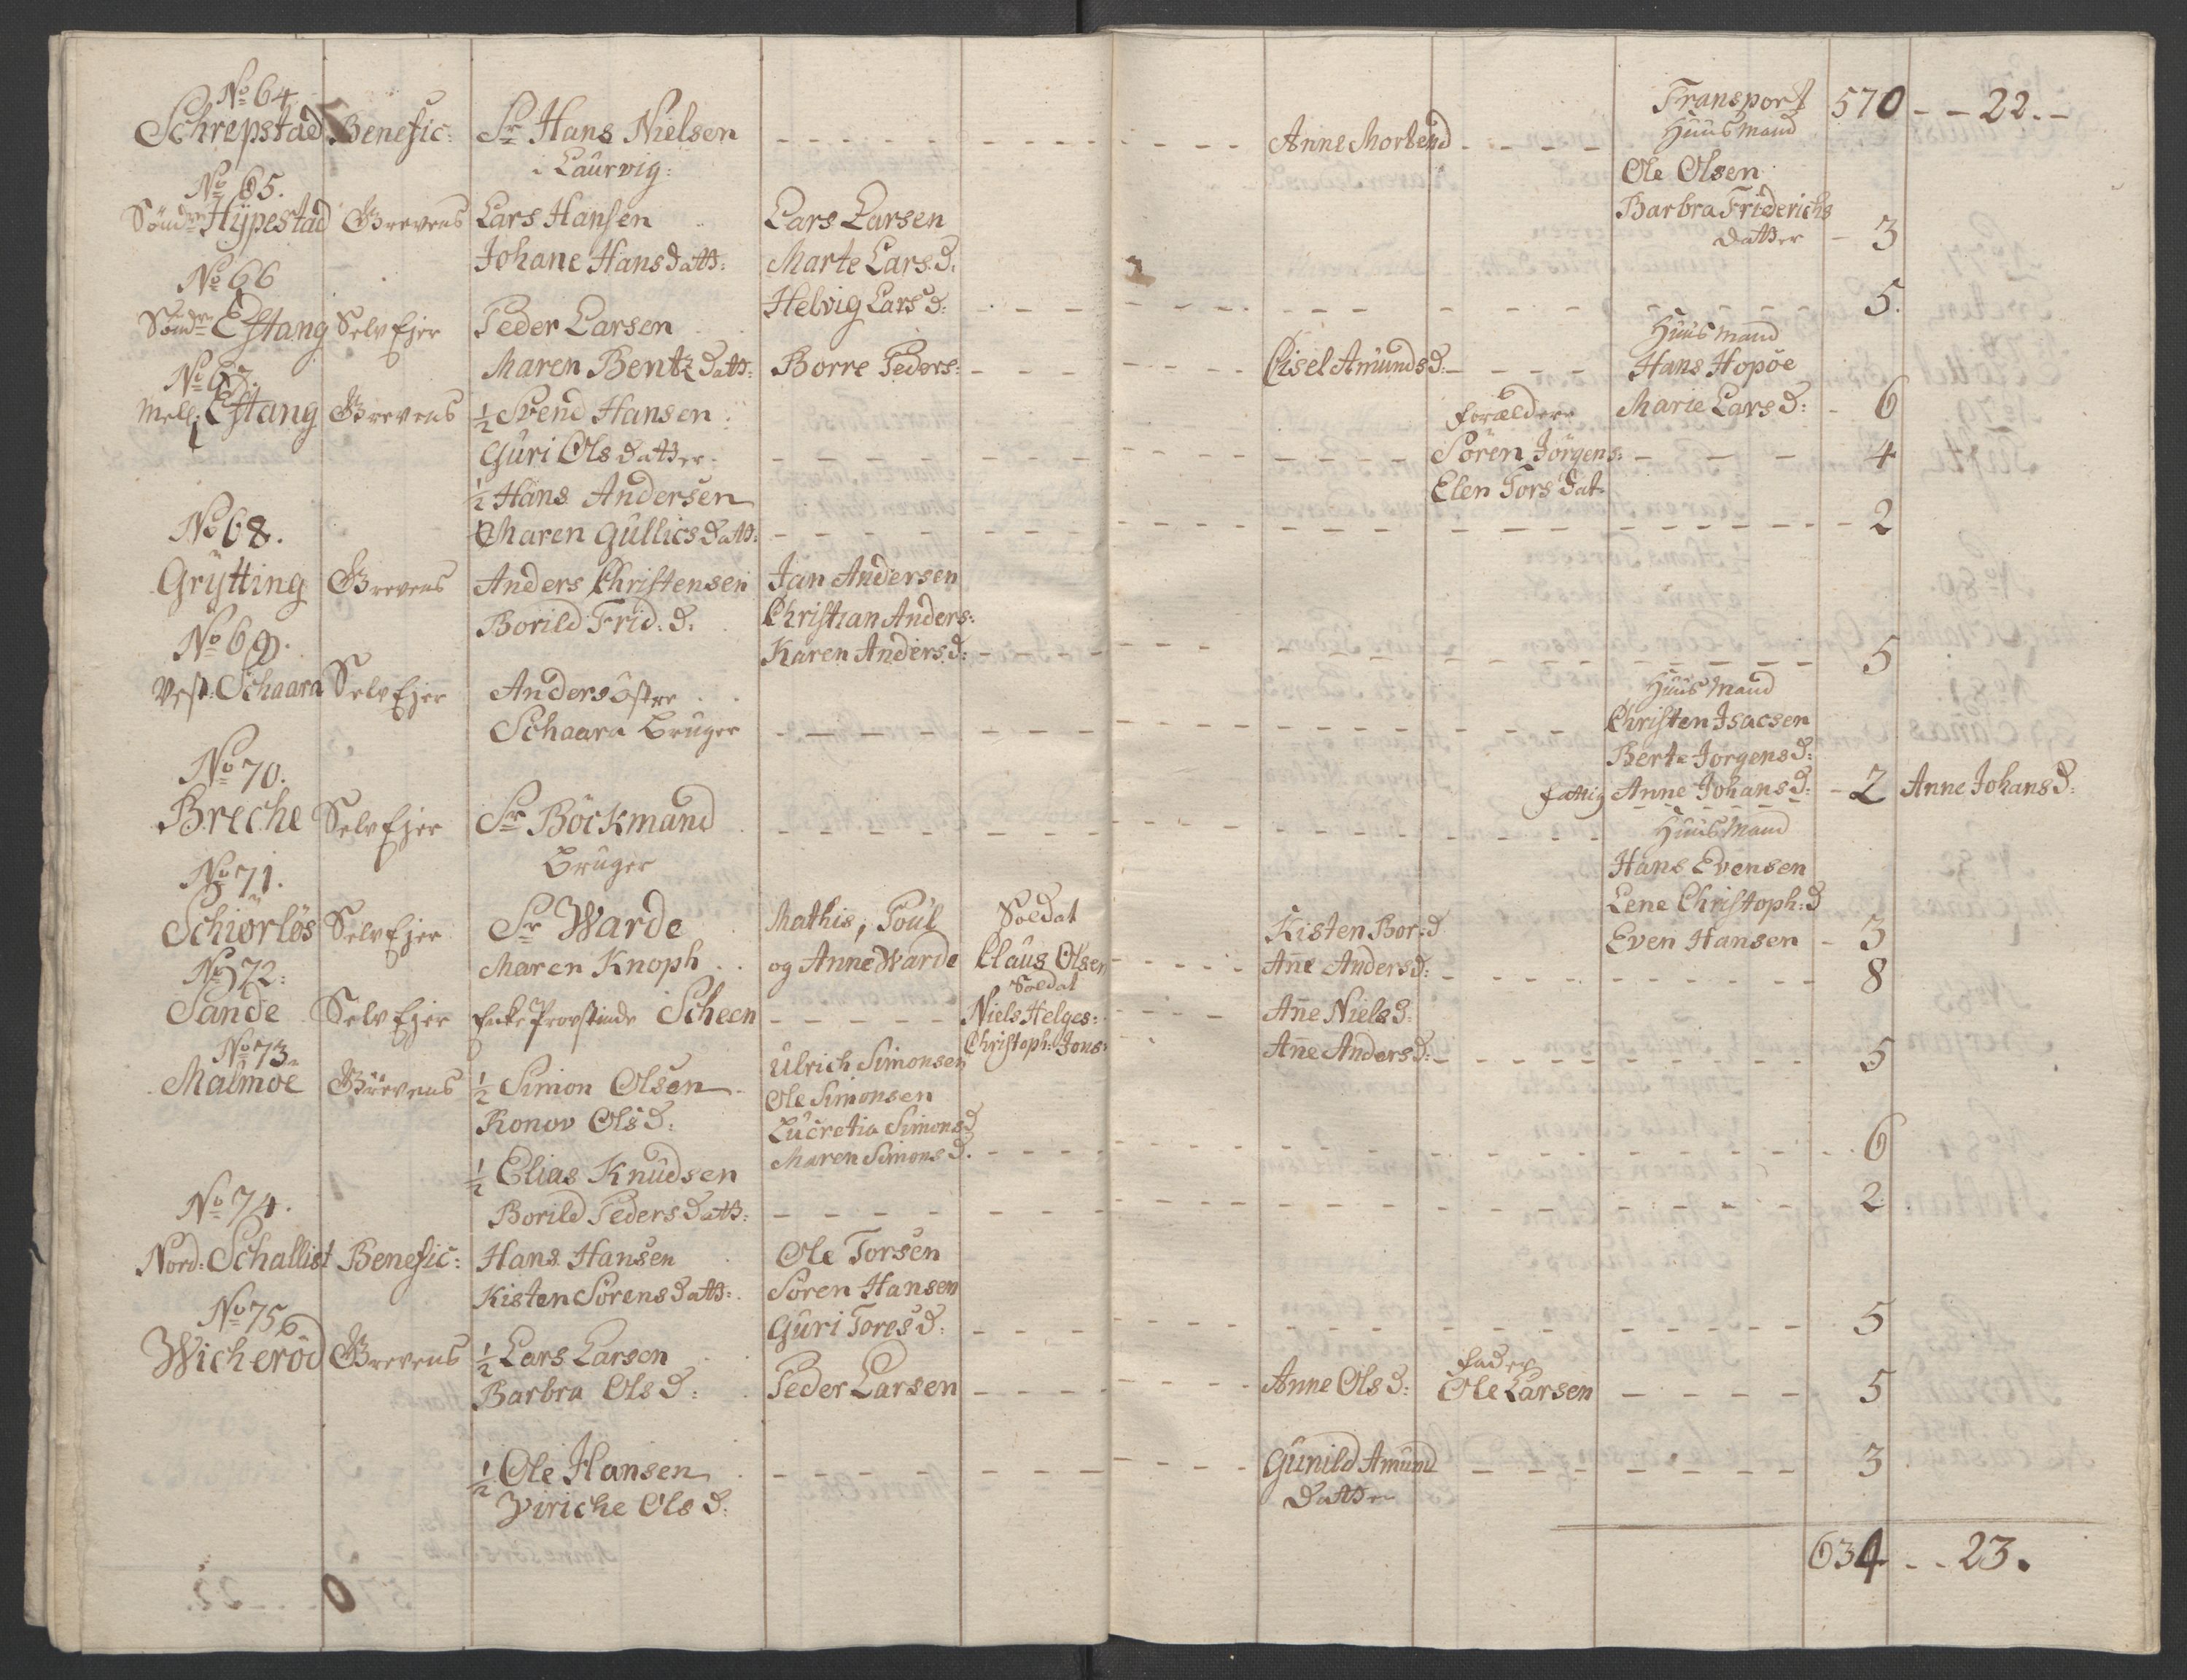 Transport 570 - - 22. -
No 64
Schrepstad Benefic: Sr Hans Nielsen - - - - Anne Mortensd - - - - Huusmand
i Laurvig: Ole Olsen
Barbra Friderichs
Datter - 3
No 65.
Søndr Hÿpestad Grevens Lars Hansen Lars Larsen
Johane Hansdatt: Marte Lars.d.
Helvig Lars d: - - - - 5.
No 66
Søndr Estang Selv Ejer Peder Larsen Huusmand
Maren Bentz Datt: Borre Peders: - - - - Cisel Amunds d: - - - - Hans Hopøe
Marie Lars d: - 6
No 67.
Mell: Estang Grevens ½ Svend Hansen Forældere
Guri Ols datter - - - - Sören Jörgens: - - - 4
Elen Tors Dat.
½ Hans Andersen
Maren Gullics datt: - - - - 2
No 68.
Grÿtting Grevens Anders Christensen Jan Andersen
Borild Frid: d: Christian Anders:
Karen Anders d: - - - - 5
No 69.
Vest: Schaara Selv Ejer Anders Östre Huusmand
Schaara Bruger - - - - Christen Isacsen
Berte Jörgens d:
fattig Anne Johans d: - 2 Anne Johans d:
No 70.
Breche Selv Ejer Sr Böckmand - - - - Huusmand
Bruger Hans Evensen
Lene Christoph: d
Even Hansen - 3
No 71.
Schiörlös Selv Ejer Sr Warde Mathis, Poul Soldat Kisten Bor: d
Maren Knoph og Anne Warde Claus Olsen - - - - Ane Anders d: - - - - 8
No 72:
Sande Selv Ejer Enke Provstinde Scheen - - - - Soldat
Niels Helges: - - - - Ane Niels d:
Christoph: Jons: Ane Anders d: - - - - 5
No 73.
Malmöe Grevens ½ Simon Olsen Ulrich Simonsen
Ronov Ols d: Ole Simonsen
Lucretia Simons d
Maren Simons d. - - - - 6
½ Elias Knudsen
Borild Peders datt: - - - - 2
No 74.
Nord: Schallist Benefic: Hans Hansen Ole Torsen
Kisten Sörens datt: Sören Hansen
Guri Tores d: - - - - 5
No 75
Wicheröd Grevens ½ Lars Larsen Fader
Barbra Ols d: Peder Larsen - - - - Anne Ols d: Ole Larsen - - - - 5
½ Ole Hansen - - - - Gunild Amund - - - - 3
Viriche Ols d: Datter
634 - - 23.